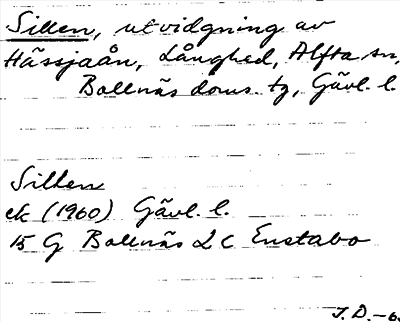 Sillen, utvidgning av
Hässjaån, Långhed, Alfta sn,
Bollnäs doms. tg, Gävl. l.
Sillen
ek (1960) Gävl. l.
15 G Bollnäs 2 C Enstabo
J.D.-63